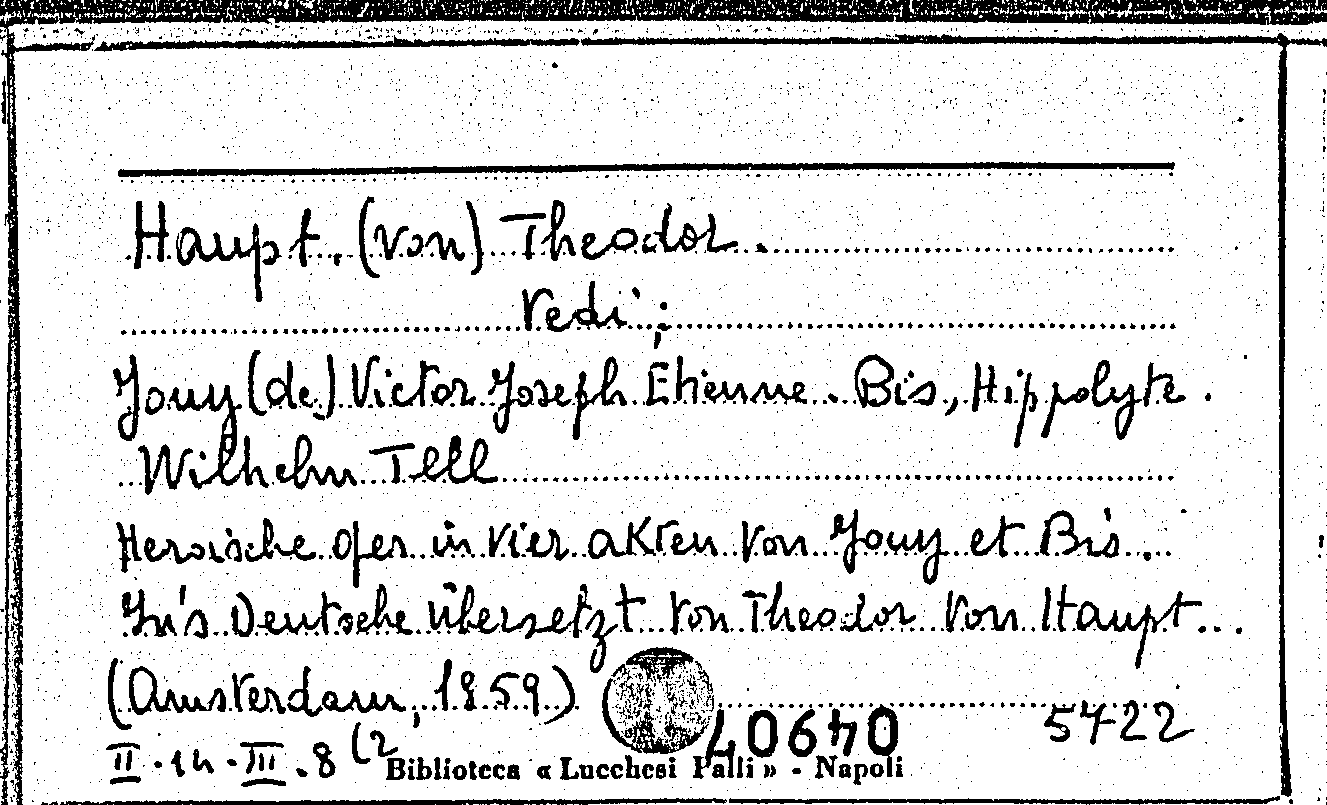 Haupt. (von) Theodor.
Vedi:
Jouy (de) Victor Joseph Étienne. Bis, Hippolyte.
Wilhelm Tell
Heroische oper in vier akten von Jouy et Bis.
In's Deutsche übersetzt von Theodor von Haupt...
(Amsterdam, 1859)
040907 5722
II.14.III.8 (2
Biblioteca « Lucchesi Palli » - Napoli